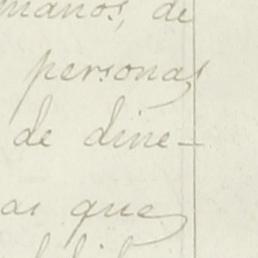 manos, de
personas
de dine-
as que